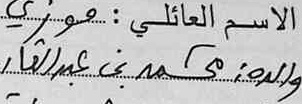 الاسم العائلي : فوزي
والده : محمد بن عبد القادر